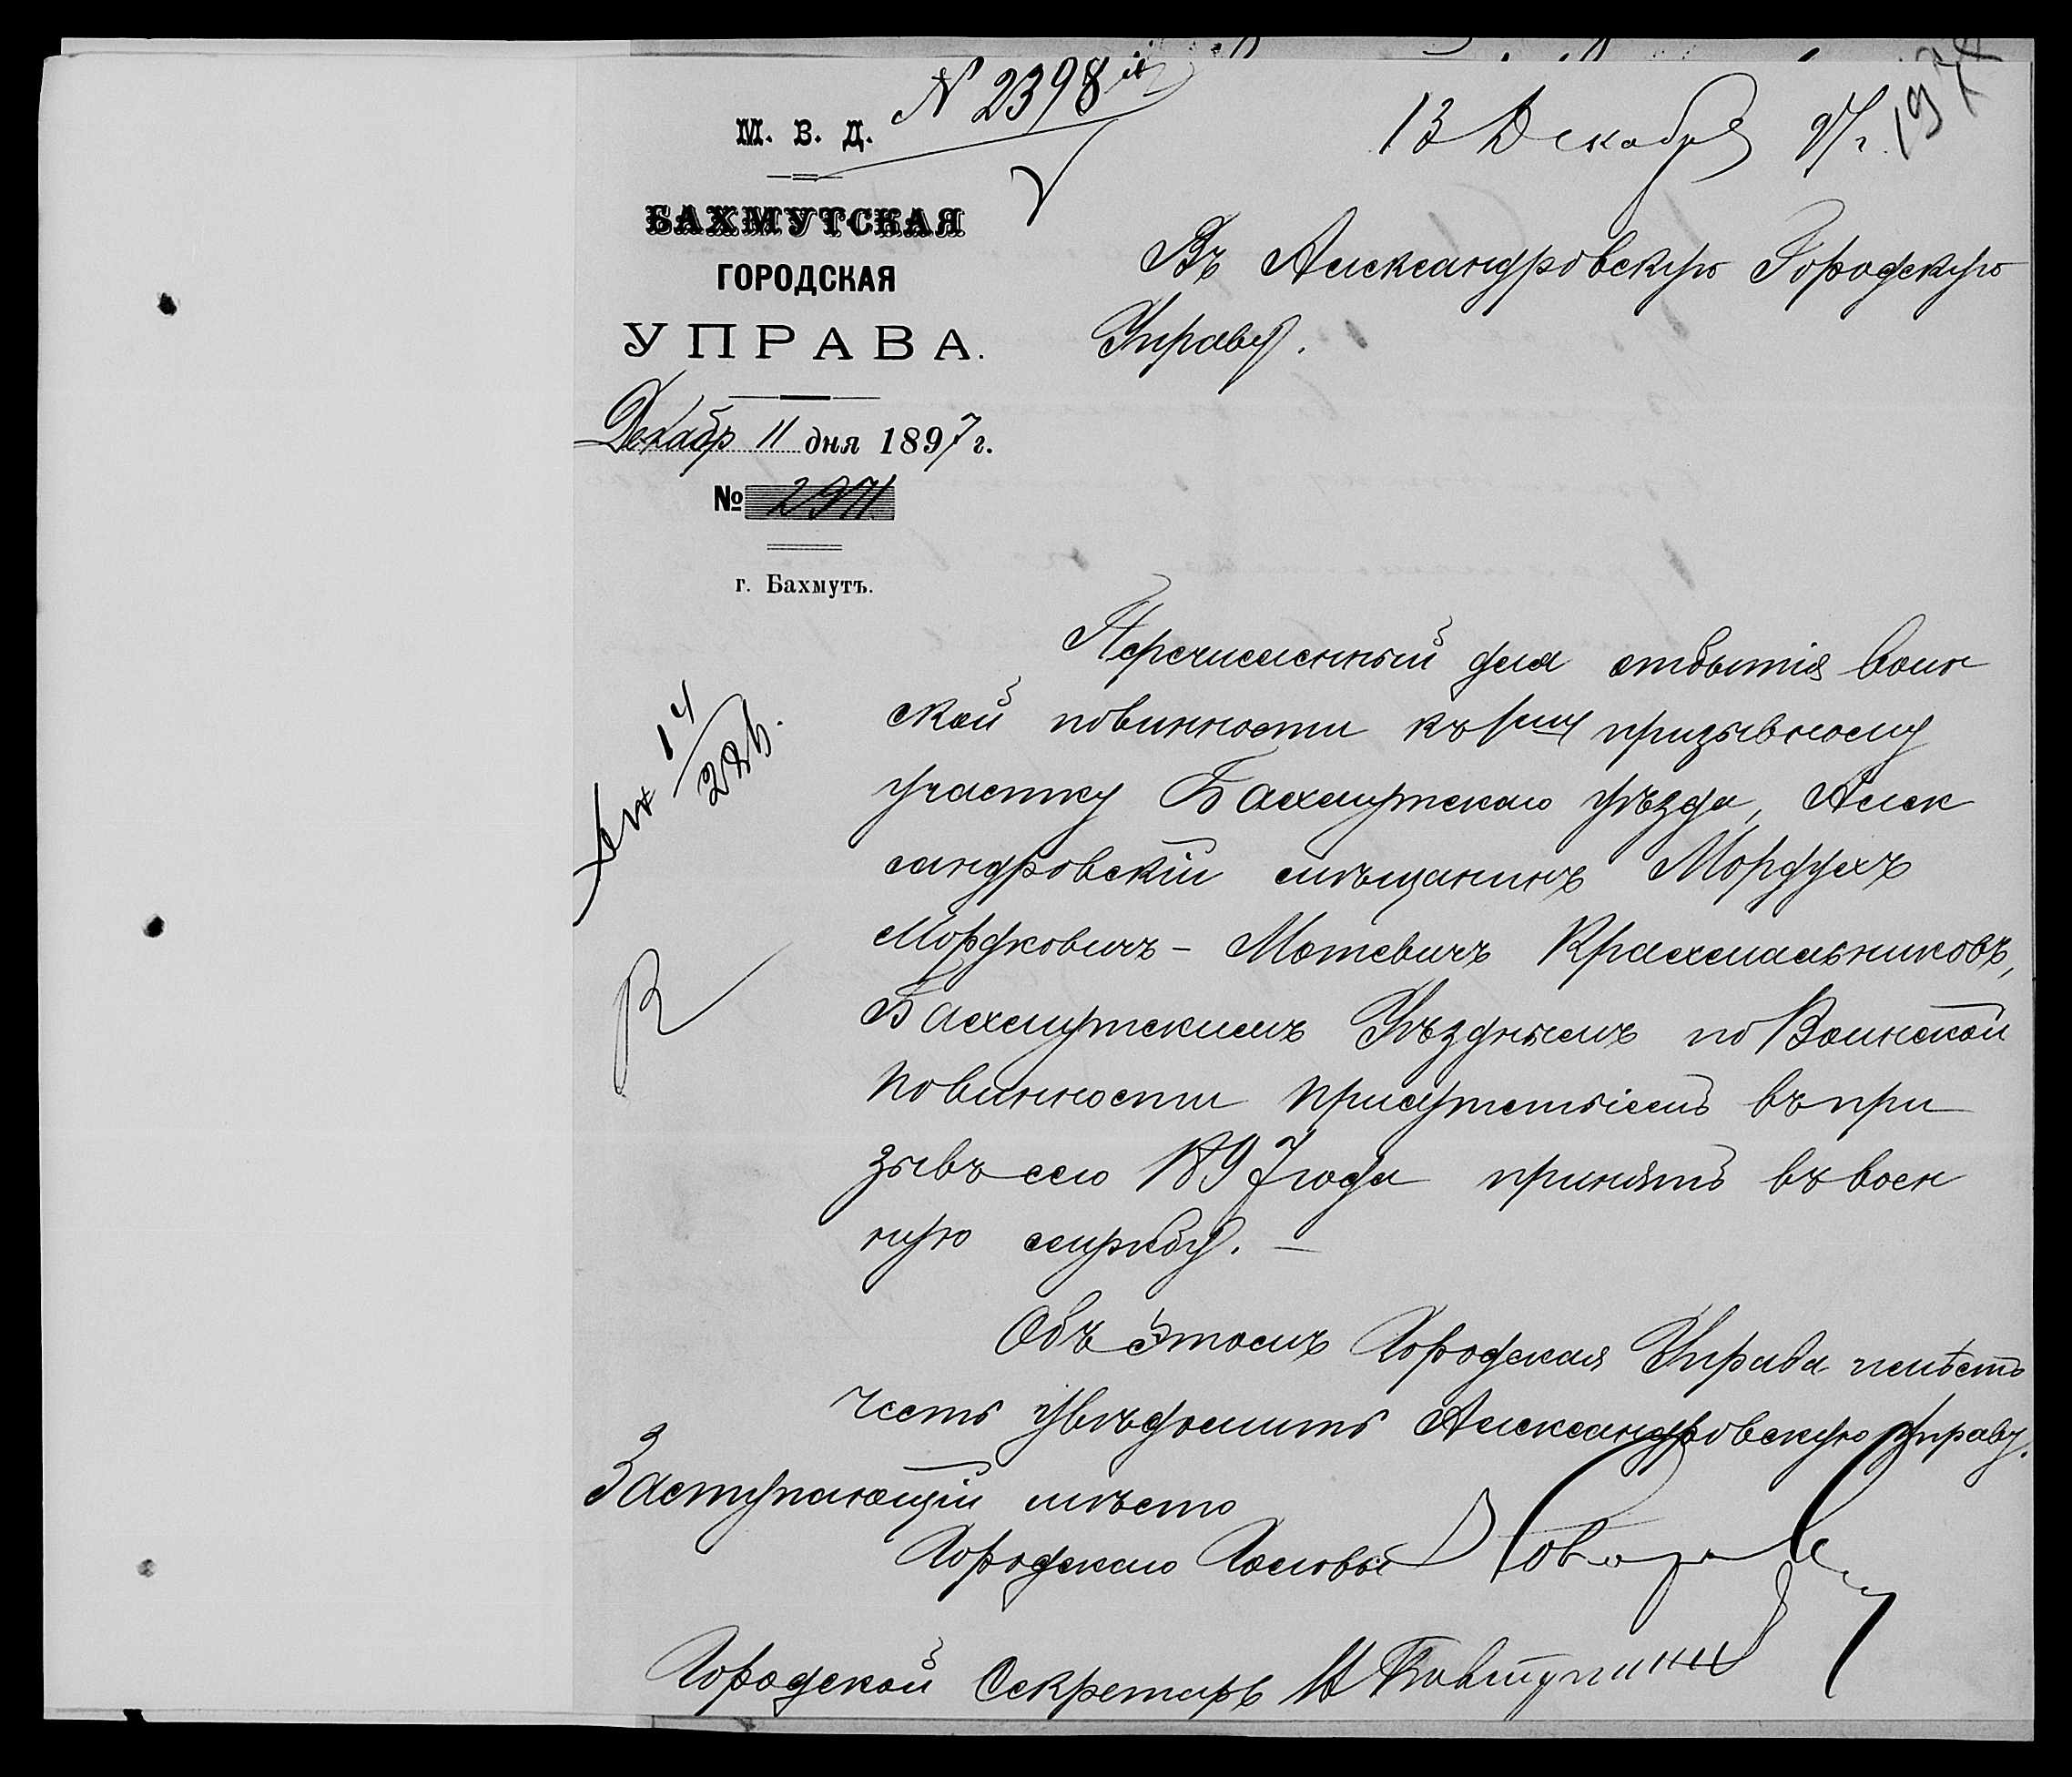 № 2398
13 Декабря 97 г.
М. В. Д.
БАХМУТСКАЯ
ГОРОДСКАЯ
УПРАВА.
Декабр 11 дня 1897 г.
№ 2971
г. Бахмутъ.
Въ Александровскую Городскую
Управу.
Перечисленный для отбытія воин
ской повинности къ 1му призывному
участку Бахмутскаго уѣзда, Алек
сандровскій мѣщанинъ Мордухъ
Мордковичъ - Мотевичъ Крахмальниковъ,
Бахмутскимъ Уѣзднымъ по Воинской
повинности присутствіемъ въ при
зывъ сего 1897 года принятъ въ воен
ную службу. —
Объ этомъ Городская Управа имѣетъ
честь увѣдомить Александровскую Управу.
Заступающій мѣсто
Городскаго Головы
Городской Секретарь